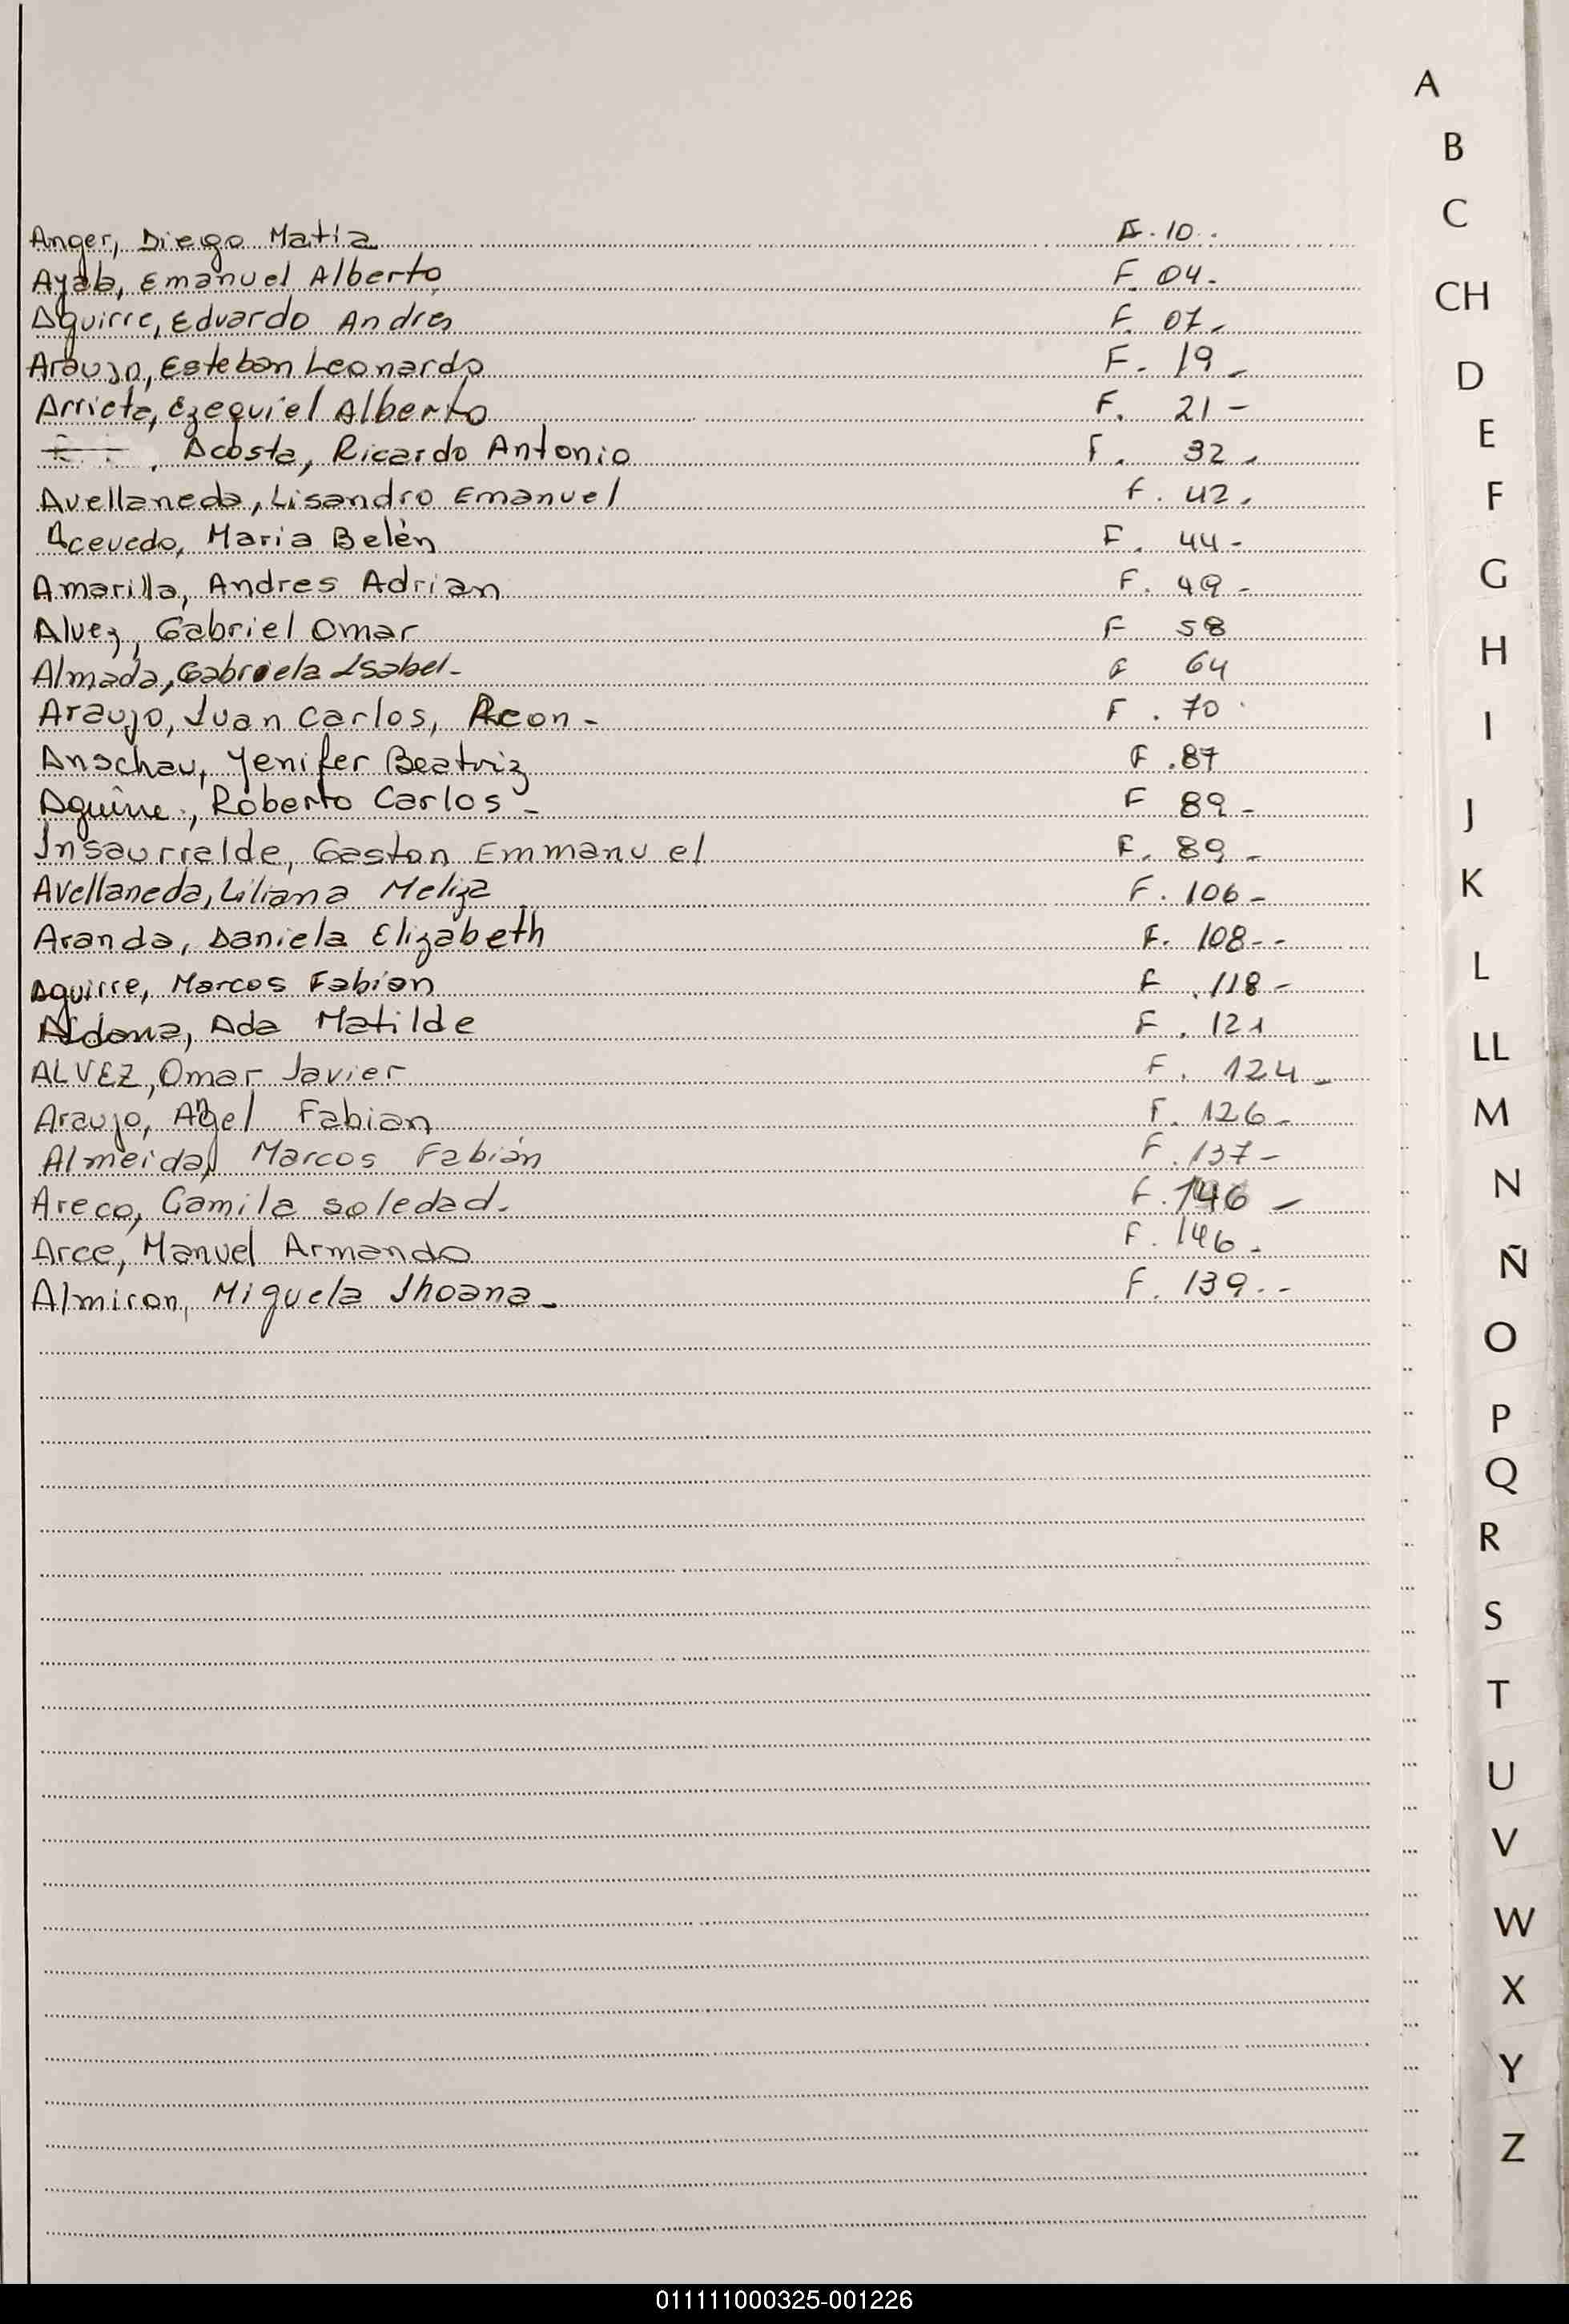 Anger, Diego Matia F. 10.
Ayala, Emanuel Alberto F. 04.
Aguirre, Eduardo Andres F. 07.
Araujo, Esteban Leonardo F. 19.
Arrieta, Ezequiel Alberto F. 21-
Acosta, Ricardo Antonio F. 32.
Avellaneda, Lisandro Emanuel F. 42.
Acevedo, Maria Belén F. 44-
Amarilla, Andres Adrian F. 49-
Alvez, Gabriel Omar F 58
Almada, Gabriela Isabel- F 64
Araujo, Juan Carlos, Reon- F. 70
Anschau, Yenifer Beatriz F. 87
Aguirre, Roberto Carlos- F 89-
Insaurralde, Gaston Emmanuel F. 89-
Avellaneda, Liliana Meliza F. 106-
Aranda, Daniela Elizabeth F. 108--
Aguirre, Marcos Fabian F. 118-
Aldana, Ada Matilde F. 121
ALVEZ, Omar Javier F. 124-
Araujo, Angel Fabian F. 126-
Almeida, Marcos Fabián F. 137-
Areco, Camila Soledad. F. 146-
Arce, Manuel Armando F. 146.
Almiron, Miguela Jhoana- F. 139.-
A
B
C
CH
D
E
F
G
H
I
J
K
L
LL
M
N
Ñ
O
P
Q
R
S
T
U
V
W
X
Y
Z
011111000325-001226